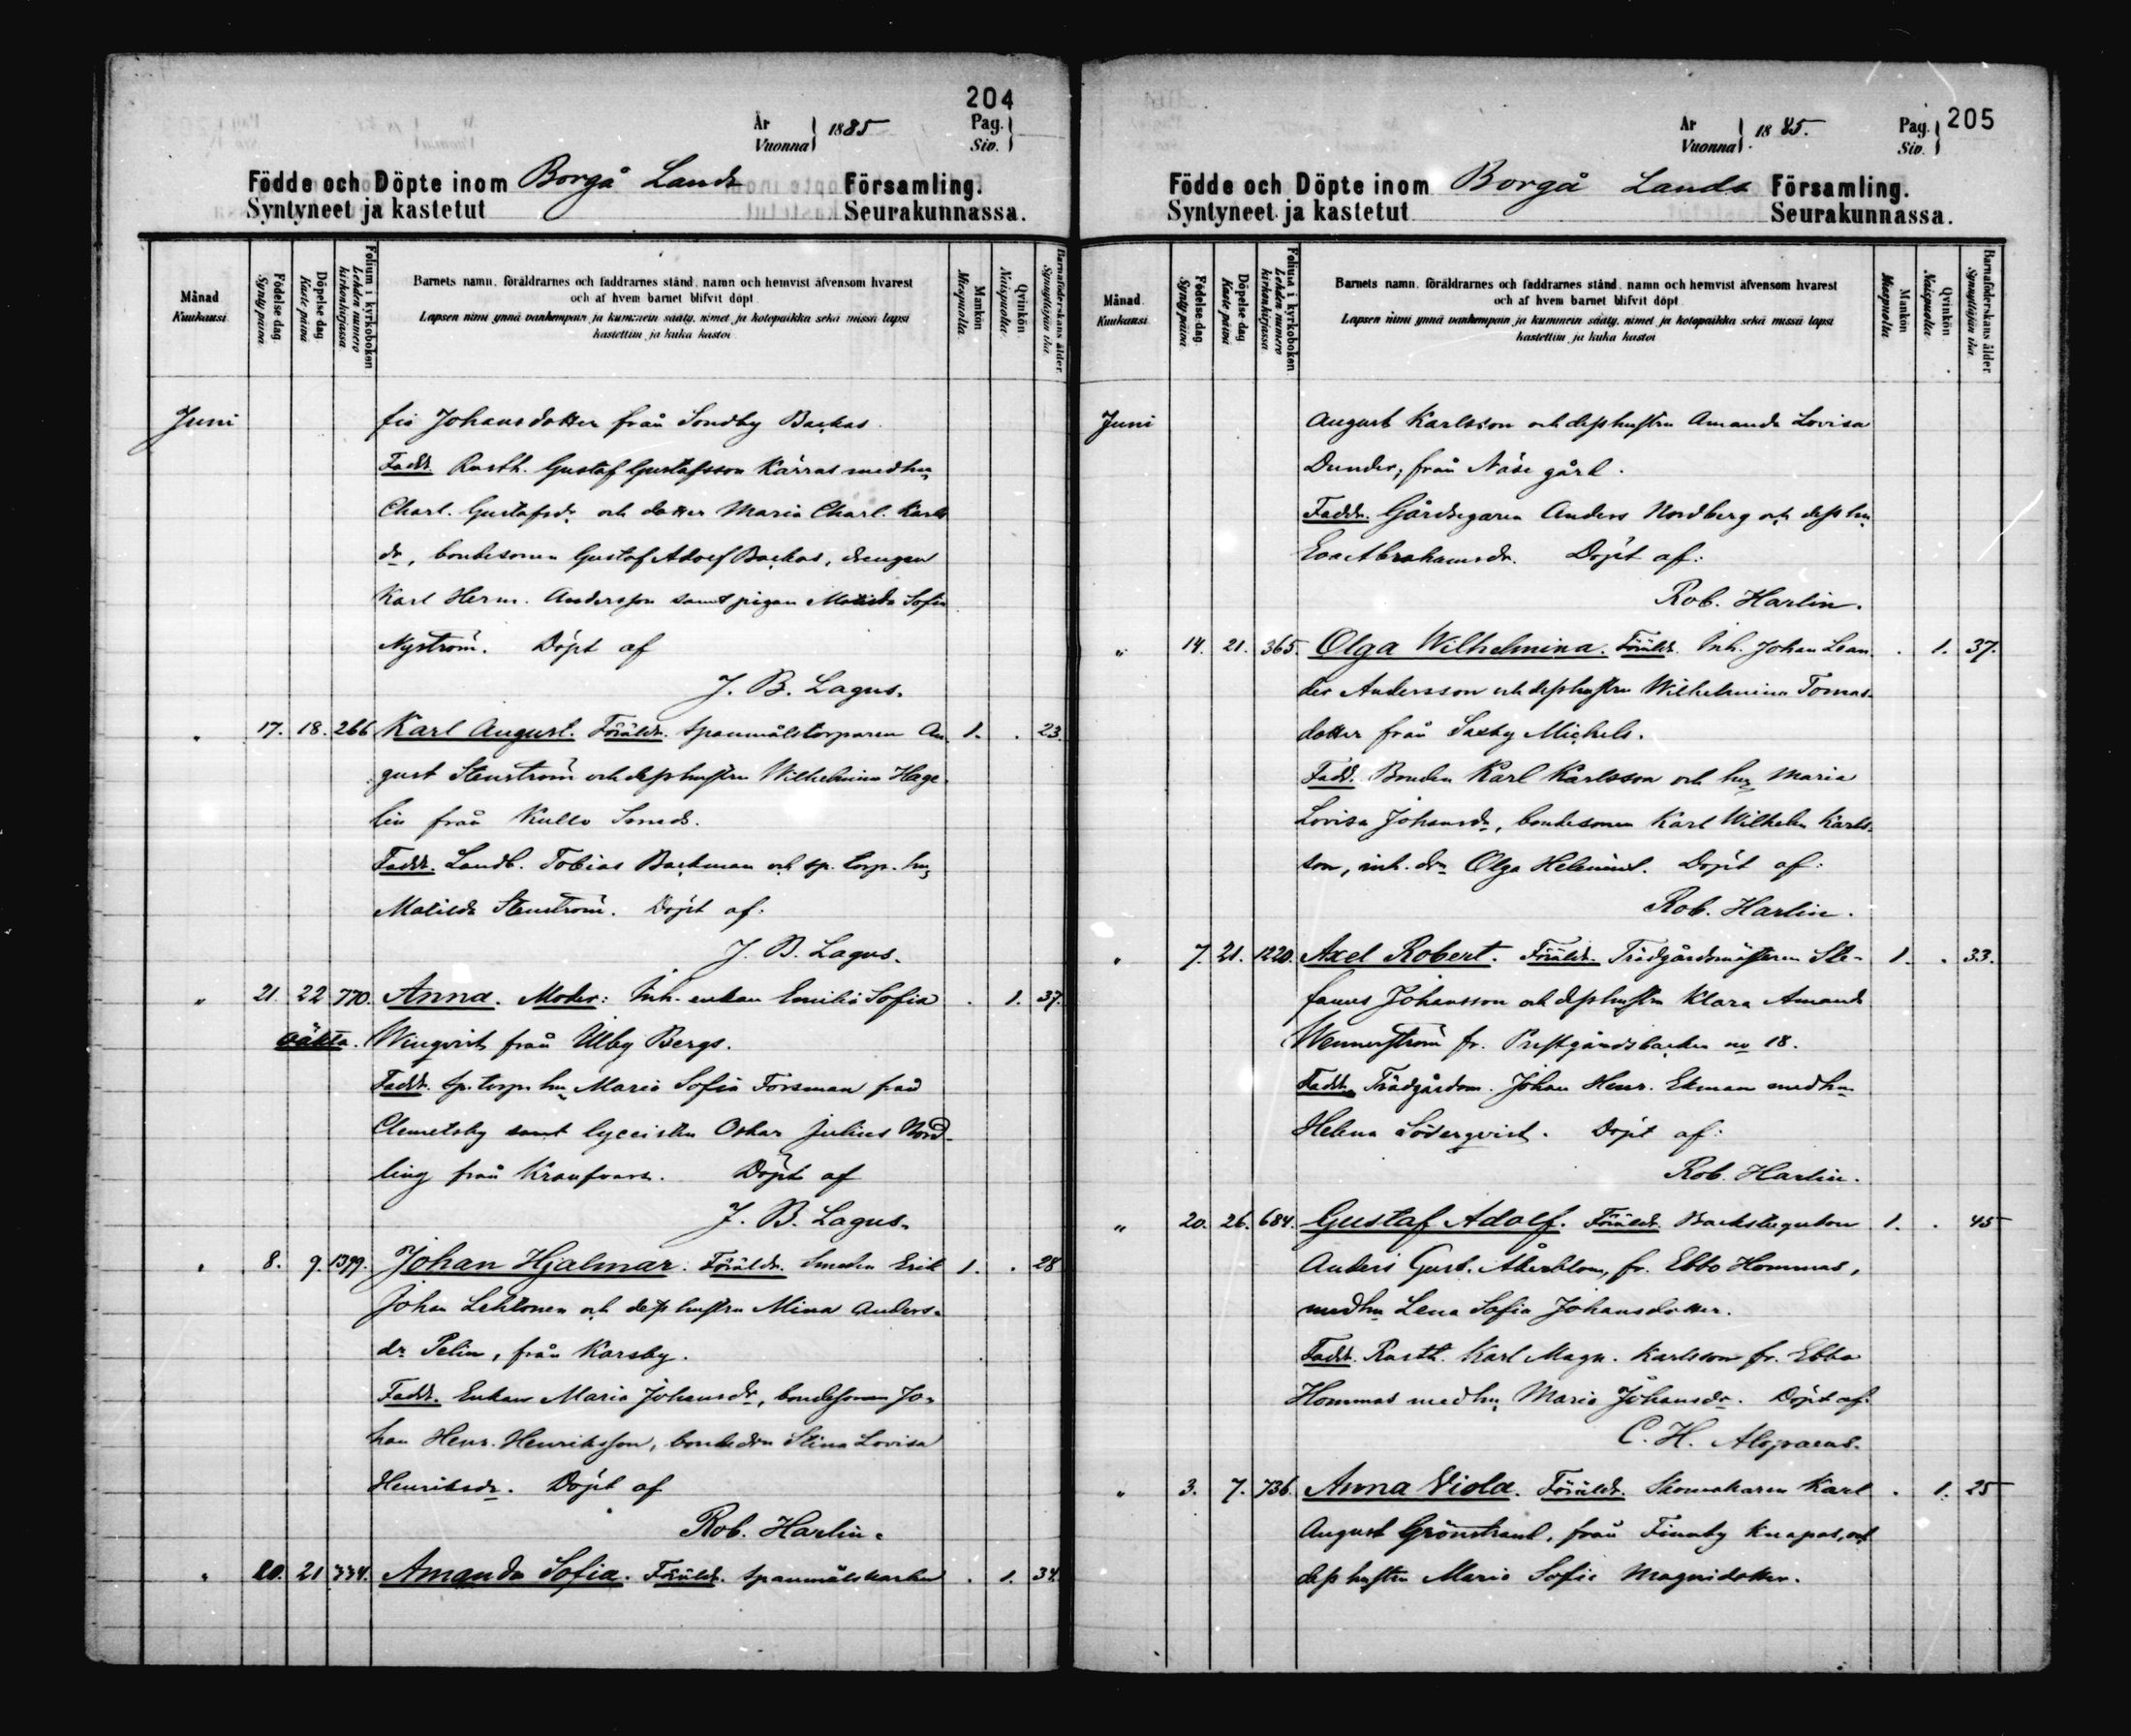 204
År
Vuonna 1885
Pag.
Siv.
Födde och Döpte inom Borgå Lands Församling.
Syntyneet ja kastetut Seurakunnassa.
Månad
Kuukausi.
Födelse dag.
Synty päivä.
Döpelse dag.
Kaste päivä
Folium i kyrkoboken
Lehden numero kirkonkirjassa.
Barnets namn, föräldrarnes och faddrarnes stånd, namn och hemvist äfvensom hvarest
och af hvem barnet blifvit döpt.
Lapsen nimi ynnä vanhempain ja kummein sääty, nimet ja kotopaikka sekä missä lapsi
kastettiin ja kuka kastoi
Mankön
Miespuolia.
Qvinkön.
Naispuolia.
Barnaföderskans ålder.
Synnyttäjän ikä.
Juni
fia Johansdotter från Sondby Backas.
Fadd. Rusth. Gustaf Gustafsson Kärras med hu
Charl. Gustafsdr och dotter Maria Charl. Karls
dr, bondesonen Gustaf Adolf Backas, drengen
Karl Herm. Andersson samt pigan Matilda Sofia
Nyström. Döpt af
J. B. Lagus.
" 17. 18. 266 Karl August. Föräldr. Spanmålstorparen Au- 1. . 23.
gust Stenström och dess hustru Wilhelmina Hage-
lin från Kullo Smeds.
Faddr. Landb. Tobias Backman och sp. torp. hu
Matilda Stenström. Döpt af:
J. B. Lagus.
" 21. 22 770. Anna. Moder: Inh. enkan Emilia Sofia . 1. 37.
oäkta. Wingvist från Illby Bergs.
Faddr. Sp. torp. hu Maria Sofia Forsman från
Clemetsby samt lyceisten Oskar Julius Nord-
ling från Kroufvars. Döpt af
J. B. Lagus.
" 8. 9. 1399. Johan Hjalmar. Föräldr. Smeden Erik 1. . 28
Johan Lehtonen och dess hustru Mina Anders-
dr Pelin, från Karsby.
Faddr. Enkan Maria Johansdr, bondesonen Jo-
han Henr. Henriksson, bondedrn Stina Lovisa
Henriksdr. Döpt af
Rob. Harlin.
" 20. 21 334. Amanda Sofia. Föräldr. Spanmålskarlen . 1. 34.
År
Vuonna 1885.
Pag.
Siv.
205
Födde och Döpte inom Borgå Lands Församling.
Syntyneet ja kastetut Seurakunnassa.
Månad.
Kuukausi.
Födelse dag.
Synty päivä.
Döpelse dag.
Kaste päivä
Folium i kyrkoboken
Lehden numero kirkonkirjassa.
Barnets namn, föräldrarnes och faddrarnes stånd, namn och hemvist äfvensom hvarest
och af hvem barnet blifvit döpt.
Lapsen nimi ynnä vanhempain ja kummein sääty, nimet ja kotopaikka sekä missä lapsi
kastettiin ja kuka kastoi
Mankön
Miespuolia
Qvinkön.
Naispuolia.
Barnaföderskans ålder
Synnyttäjän ikä.
Juni
August Karlsson och dess hustru Amanda Lovisa
Dunder, från Näse gård.
Faddr. Gårdsegaren Anders Nordberg och dess hu
Eva Abrahamsdr. Döpt af:
Rob. Harlin.
" 14. 21. 365. Olga Wilhelmina. Föräldr. Inh. Johan Lean- . 1. 37.
der Andersson och dess hustru Wilhelmina Tomas-
dotter från Saxby Michels.
Fadd. Bonden Karl Karlsson och hu Maria
Lovisa Johansdr, bondesonen Karl Wilhelm Karls-
son, inh. drn Olga Döpt af:
Rob. Harlin.
" 7. 21. 1220. Axel Robert. Föräldr. Trädgårdsmästaren Ste- 1. . 33.
fanus Johansson och dess hustru Klara Amanda
Wennerström fr. Prestgårdsbacken no 18.
Faddr. Trädgårdsm. Johan Henr. Ekman med hu
Helena Söderqvist. Döpt af:
Rob. Harlin.
" 20. 26. 684. Gustaf Adolf. Föräldr. Backstugubon 1. . 45
Anders Gust. Åkerblom, fr. Ebbo Hommas,
med hu Lena Sofia Johansdotter.
Faddr. Rusth. Karl Magn. Karlsson fr. Ebbo
Hommas med hu Maria Johansdr. Döpt af:
C. H. Alopaeus.
" 3. 7. 736. Anna Viola. Föräldr. Skomakaren Karl . 1. 25
August Grönstrand, från Finnby Knapas, och
dess hustru Maria Sofia Magnidotter.